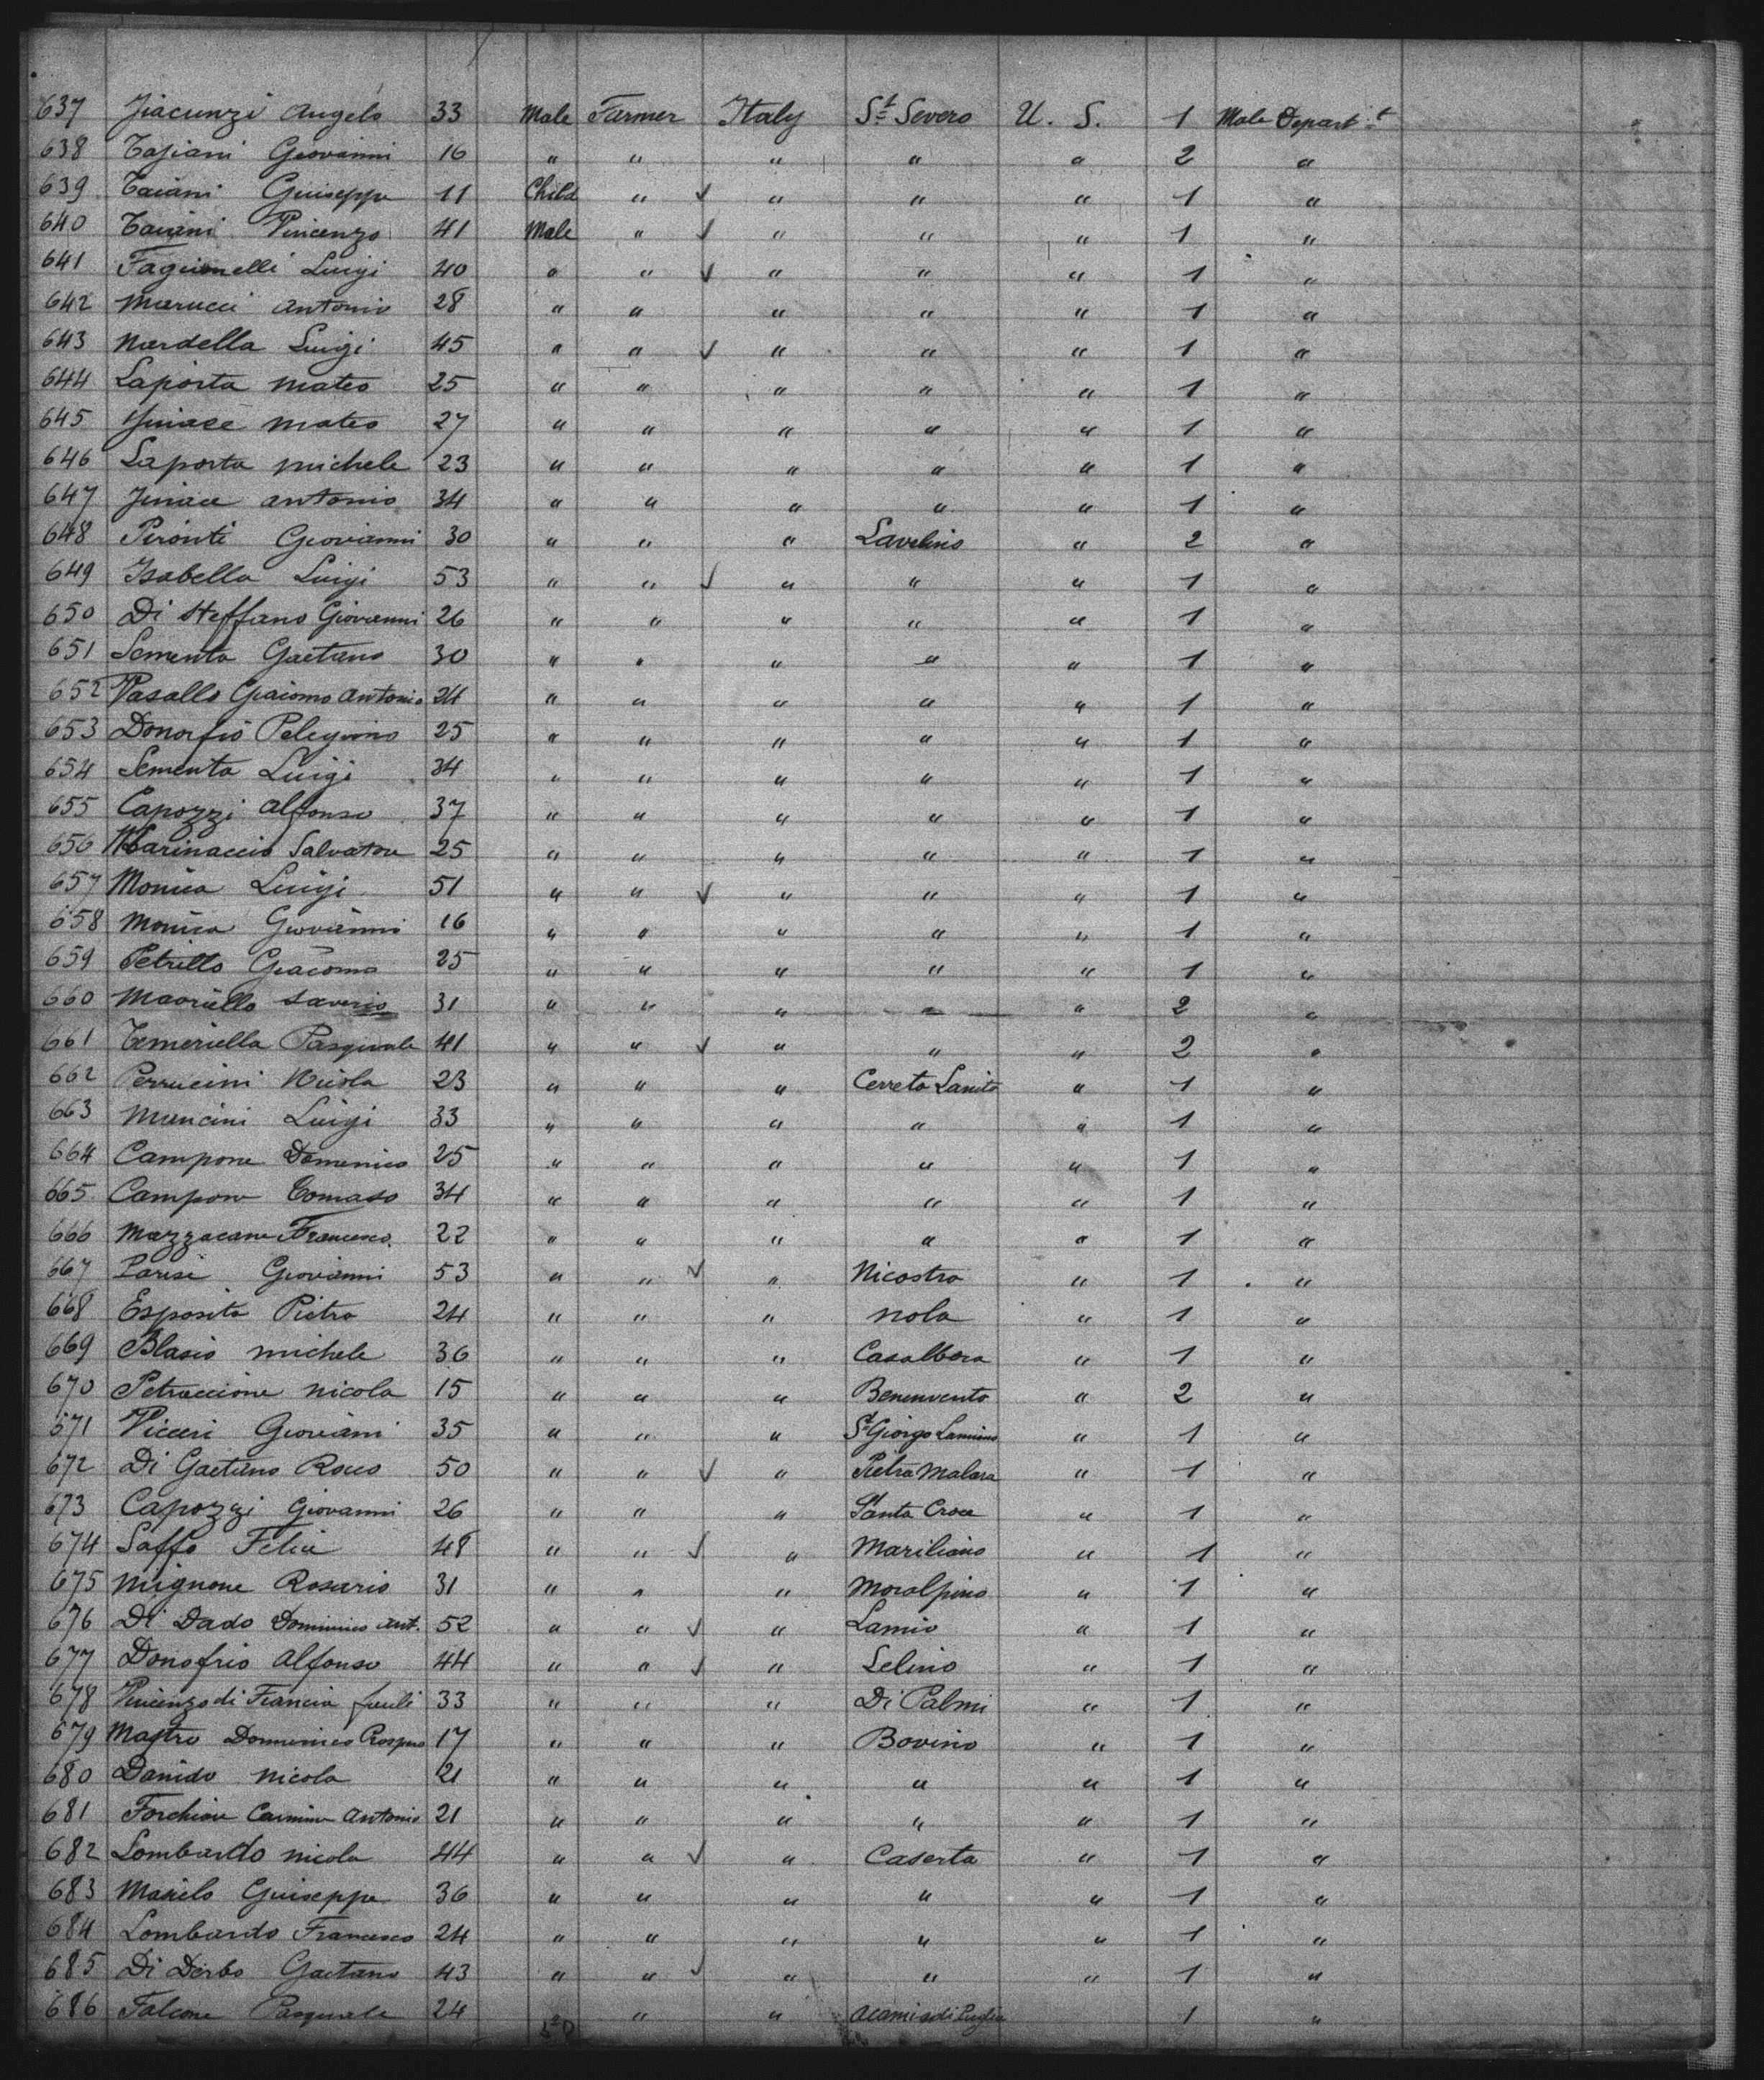 637 Jiacunzi Angelo 33 Male Farmer Italy St Severo U. S. 1 Male Depart t
638 Tajiani Giovanni 16 " " " " " 2 "
639 Taiani Guiseppe 11 Child " ✓ " " " 1 "
640 Taiani Vincenzo 41 Male " ✓ " " " 1 "
641 Luigi 40 " " ✓ " " " 1 "
642 Marucci Antonio 28 " " " " " 1 "
643 Nardella Luigi 45 " " ✓ " " " 1 "
644 Laporta Mateo 25 " " " " " 1 "
645 Mateo 27 " " " " " 1 "
646 Laporta Michele 23 " " " " " 1 "
647 Antonio 34 " " " " " 1 "
648 Pironti Giovianni 30 " " " Lavelino " 2 "
649 Isabella Luigi 53 " " ✓ " " " 1 "
650 Di Steffano Giovanni 26 " " " " " 1 "
651 Sementa Gaetano 30 " " " " " 1 "
652 Vasallo Giaiomo Antonio 24 " " " " " 1 "
653 Donofrio 25 " " " " " 1 "
654 Sementa Luigi 34 " " " " " 1 "
655 Capozzi Alfonso 37 " " " " " 1 "
656 Marinaccio Salvatore 25 " " " " " 1 "
657 Monica Luigi 51 " " ✓ " " " 1 "
658 Monica Giovanni 16 " " " " " 1 "
659 Petrillo Giacomo 25 " " " " " 1 "
660 Maoriello Saverio 31 " " " " " 2 "
661 Temeriella Pasquale 41 " " ✓ " " " 2 "
662 Perrucini Nicola 23 " " " Cerreto Sanito " 1 "
663 Mancini Luigi 33 " " " " " 1 "
664 Campone Domenico 25 " " " " " 1 "
665 Campone Tomaso 34 " " " " " 1 "
666 Mazzacane Francesco 22 " " " " " 1 "
667 Parisi Giovanni 53 " " ✓ " Nicostro " 1 "
668 Esposito Pietro 24 " " " Nola " 1 "
669 Blasio Michele 36 " " " Casalbora " 1 "
670 Petraccione Nicola 15 " " " Benenvento " 2 "
671 Giovanni 35 " " " St Giorgo " 1 "
672 Di Gaetano Rocco 50 " " ✓ " Pietra Malara " 1 "
673 Capozzi Giovanni 26 " " " Santa Croce " 1 "
674 Saffo Felice 48 " " ✓ " Mariliano " 1 "
675 Mignone Rosario 31 " " " Moralfino " 1 "
676 Di Dado Dominico Ant. 52 " " ✓ " Lamio " 1 "
677 Donofrio Alfonso 44 " " ✓ " Lelino " 1 "
678 Vincenzo di Francia 33 " " " Di Palmi " 1 "
679 Mastro Domenico 17 " " " Bovino " 1 "
680 Danido Nicola 21 " " " " " 1 "
681 Forchione Carmine Antonio 21 " " " " " 1 "
682 Lombardo Nicola 44 " " ✓ " Caserta " 1 "
683 Masielo Guiseppe 36 " " " " " 1 "
684 Lombardo Francesco 24 " " " " " 1 "
685 Di Derbo Gaetano 43 " " ✓ " " " 1 "
686 Falcone Pasquale 24 " " 1 "